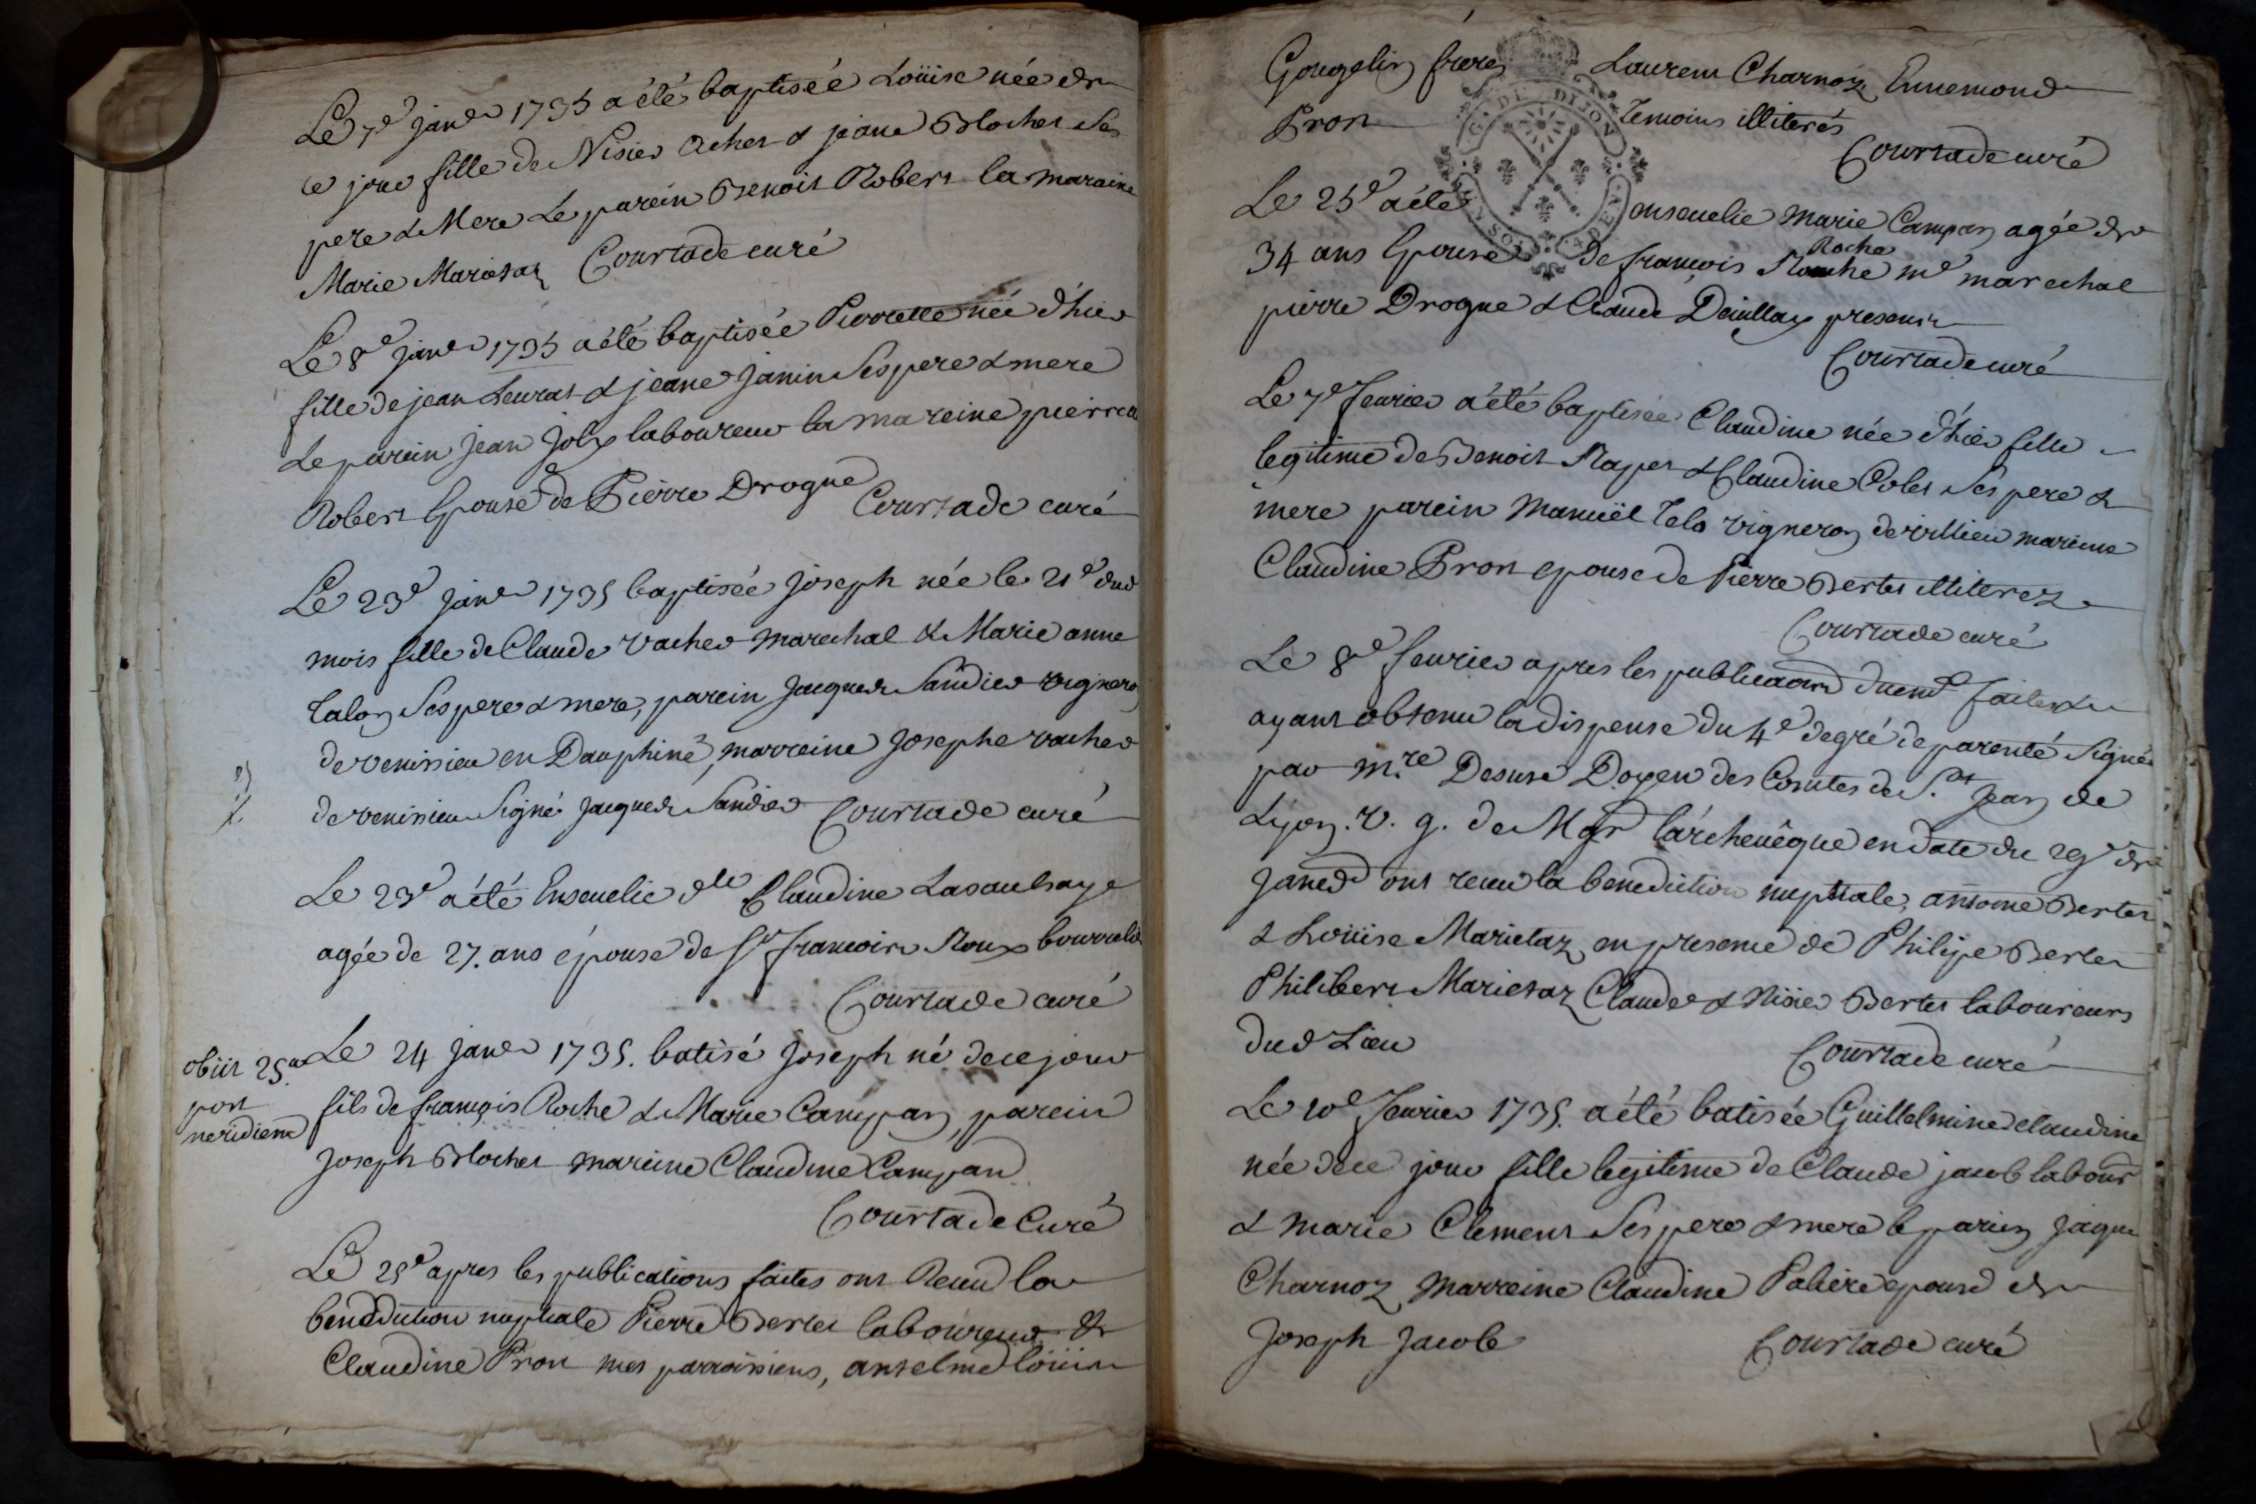 Le 7e janer 1735 a été baptisée Loüise née de
ce jour fille de Nisier Acher & jeane Blochet ses
pere & Mere Le parein Benoit Robert la maraine
Marie Marietaz Courtade curé
Le 8e janer 1735 a été baptisée Pierrette née d'hier
fille de jean Leurat & jeane Janin Ses pere & mere
Le parein Jean Joly laboureur la mareine pierrette
Robert Epouse de Pierre Drogue
Courtade curé
Le 23e janer 1735 baptisée Joseph née le 21e dud
mois fille de Claude Vacher marechal & Marie anne
Talon Ses pere & mere, parein Jacques Sandier vigneron
de venissieu en Dauphiné, marreine Josephe vacher
de venissieu Signé Jacques Sandier Courtade curé
Le 23e a été Enseuelie dlle Claudine Lasaulsaye
agée de 27. ans épouse de Sr francois Roux bourrelier
Courtade curé
obiit 25a
post
meridiem
Le 24 janer 1735. batisé Joseph né de ce jour
fils de françois Roche & Marie Campan, parein
Joseph Blochet mareine Claudine Campan
Courtade Curé
Le 25e apres les publications faites ont Receu la
benediction nuptiale Pierre Bertet laboureur &
Claudine Pron mes parroissiens, anselme loüis
Gougelin frere Laurent Charnoz Ennemond
Pron Temoins illiterés
Courtade curé
DE DIJON
Le 25e a été enseuelie Marie Campan agée de
34 ans Epouse de françois Roche me marechal
Roche
pierre Drogue & Claude presents
Courtade curé
Le 7e feurier a été baptisée Claudine née d'hier fille
legitime de Benoit Rapet & Claudine Colet Ses pere &
mere parein Manuël Tela vigneron de villieu mareine
Claudine Pron epouse de Pierre Bertet illiterez
Courtade curé
Le 8e feurier apres les publications duemt faites &
ayant obtenu la dispense du 4e degré de parenté Signée
par Mre Desuse Doyen des Comtes de St Jean de
Lyon. v. g. de Mgr l'archeuêque en date du 29e de
janer ont receu la benediction nuptiale, antoine Bertet
& Loüise Marietaz en presence de Philipe Bertet
Philibert Marietaz Claude & Nisier Bertet laboureurs
dud Lieu
Courtade curé
Le 10e feurier 1735. a été batisée Guillelmine claudine
née de ce jour fille legitime de Claude jacob labour
& marie Clement Ses pere & mere le parien jaque
Charnoz Marreine Claudine Paliere epouse de
Joseph Jacob Courtade curé